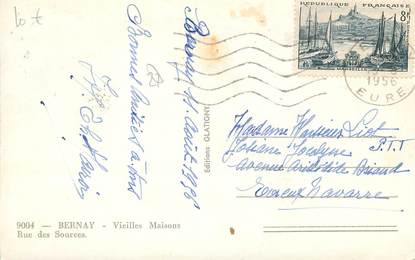 lot
Bernay 11 Août 1956
Bonnes Amitiés à tous
Editions GLATIGNY
9004 — BERNAY - Vieilles Maisons
Rue des Sources.
REPUBLIQUE FRANÇAISE
8F
MARSEILLE
1956
EURE
Madame Monsieur Liot
Josiane Jocelyne P.T.T
Avenue Aristide Briand
Evreux Navarre